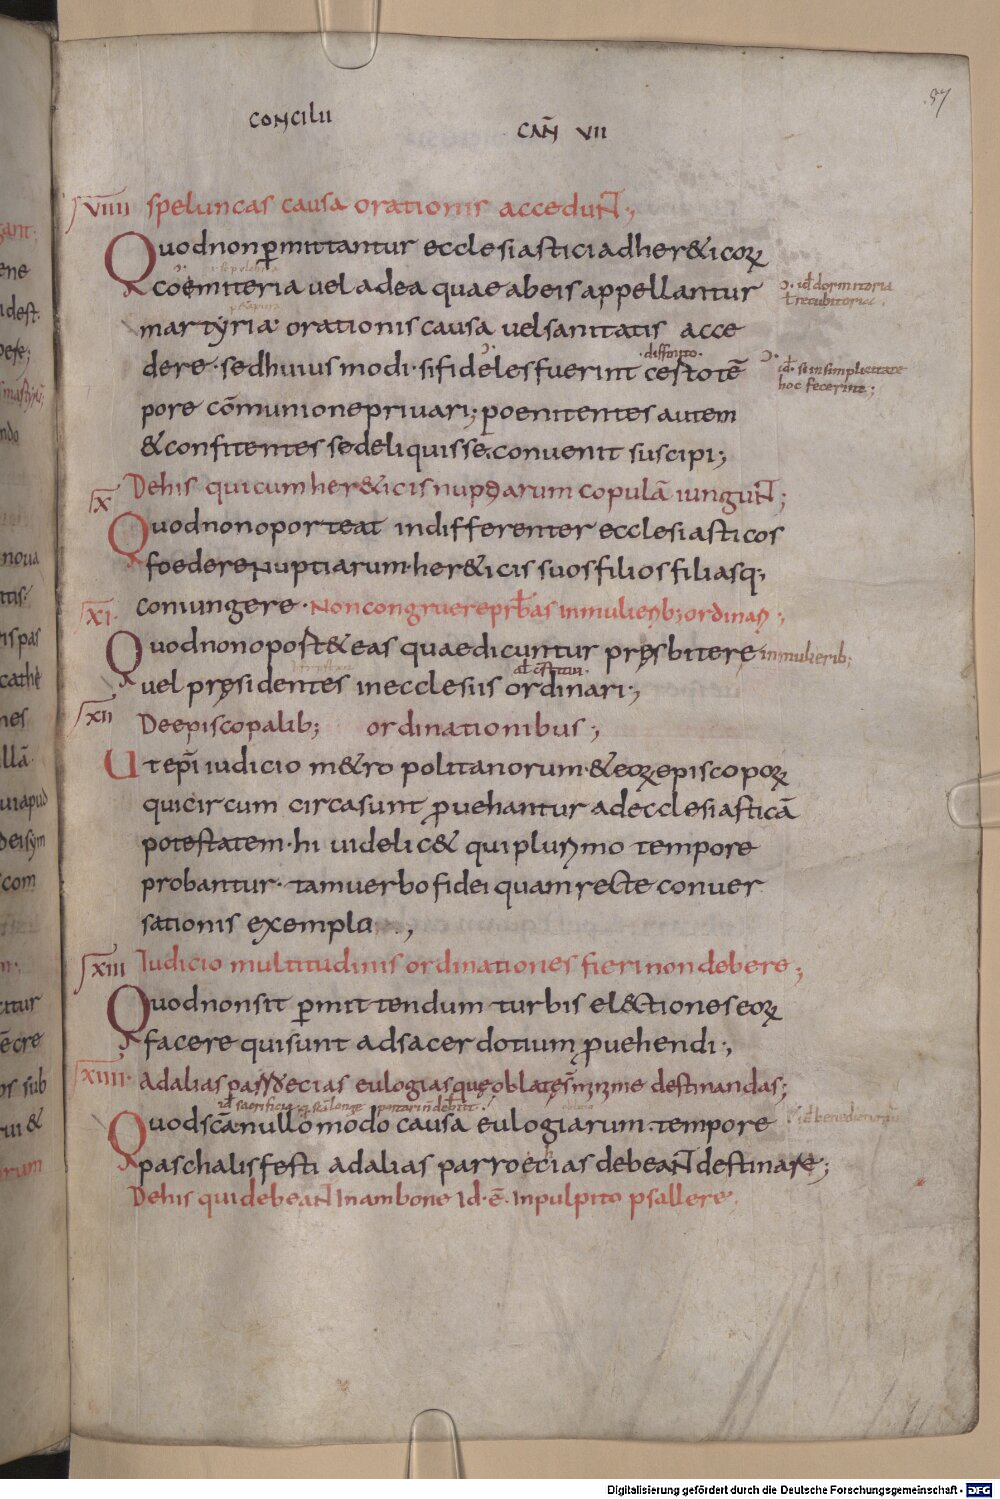 87
CONCILII CAÑ VII
VIIII speluncas causa orationis accedunt;
Quod non p̱mittantur ecclesiastici ad her&icoꝝ
coemiteria uel ad ea quae ab eis appellantur
·ↄ· id dormitoria
ł recubitoria
martyria orationis causa uel sanitatis acce
·diffinito·
dere · sed huius modi · si fideles fuerint certo tē
ↄ· id · si in simplicitate
hoc fecerint;
pore cōmunione priuari; poenitentes autem
& confitentes se deliquisse. conuenit suscipi;
X De his qui cum her&icis nuptiarum copulā iungunt;
Quod non oporteat indifferenter ecclesiasticos
foedere nuptiarum · her&icis suos filios filiasq;
coniungere · XI Non congruere prb̄as in mulierib; ordinari;
Quod non oport& eas quae dicuntur pręsbitere in mulierib;
uel pręsidentes in ecclesiis ordinari;
XII De episcopalib; ordinationibus;
Ut ep̄i iudicio m&ropolitanorum · & eoꝝ episcopoꝝ
qui circum circa sunt ꝓuehantur ad ecclesiasticā
potestatem · hi uidelic& qui plurimo tempore
probantur · tam uerbo fidei quam recte conuer
sationis exemplu..,
XIII Iudicio multitudinis ordinationes fieri non debere;
Quod non sit p̱mittendum turbis el&ctiones eoꝝ
facere qui sunt ad sacerdotium ꝓuehendi;
XIIII · Ad alias parrecias eulogias quę oblatę s̄t minime destinandas;
Quod scā nullo modo causa eulogiarum · tempore
paschalis festi ad alias parroecias debeant destinare;
De his qui debeant in ambone id · ē · in pulpito psallere.
Digitalisierung gefördert durch die Deutsche Forschungsgemeinschaft - DFG